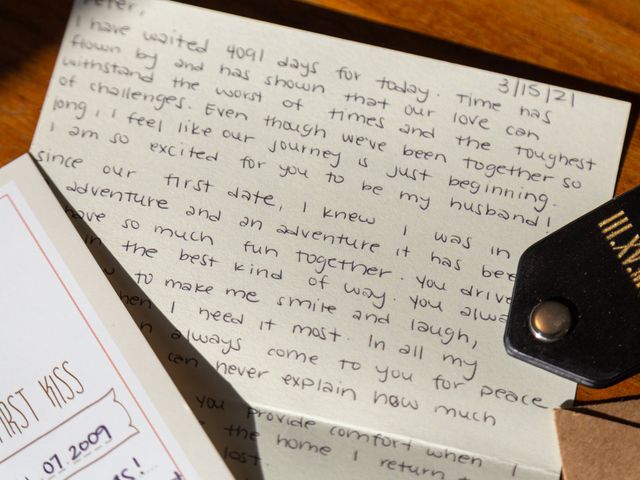 Peter,
3/15/21
I have waited 4091 days for today. Time has
flown by and has shown that our love can
withstand the worst of times and the toughest
of challenges. Even though we've been together so
long, I feel like our journey is just beginning.
I am so excited for you to be my husband!
since our first date, I knew I was in
adventure and an adventure it has bee
have so much fun together. You drive
in the best kind of way. You alwa
to make me smile and laugh,
when I need it most. In all my
always come to you for peace
can never explain how much
you provide comfort when I
the home I return
lost.
FIRST KISS
.07.2009
III.XV.